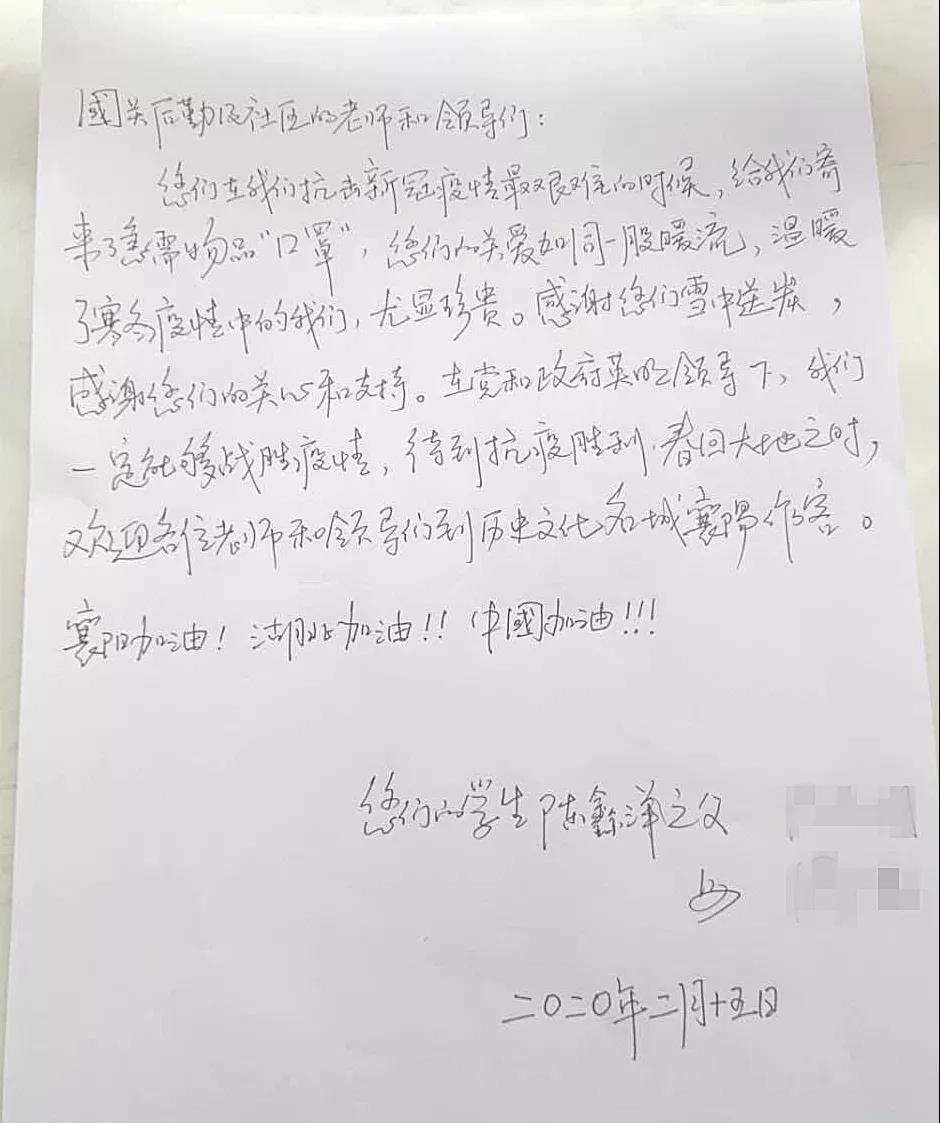 國关后勤及社区的老师和领导们：
您们在我们抗击新冠疫情最艰难的时候，给我们寄
来了急需物品“口罩”，您们的关爱如同一股暖流，温暖
了寒冬疫情中的我们，尤显珍贵。感谢您们雪中送炭，
感谢您们的关心和支持。在党和政府英明领导下，我们
一定能够战胜疫情，待到抗疫胜利.春回大地之时，
欢迎各位老师和领导们到历史文化名城襄陽作客。
襄阳加油！湖北加油！！中國加油！！！
您们的学生陈鑫洋之父
母
二〇二〇年二月十五日